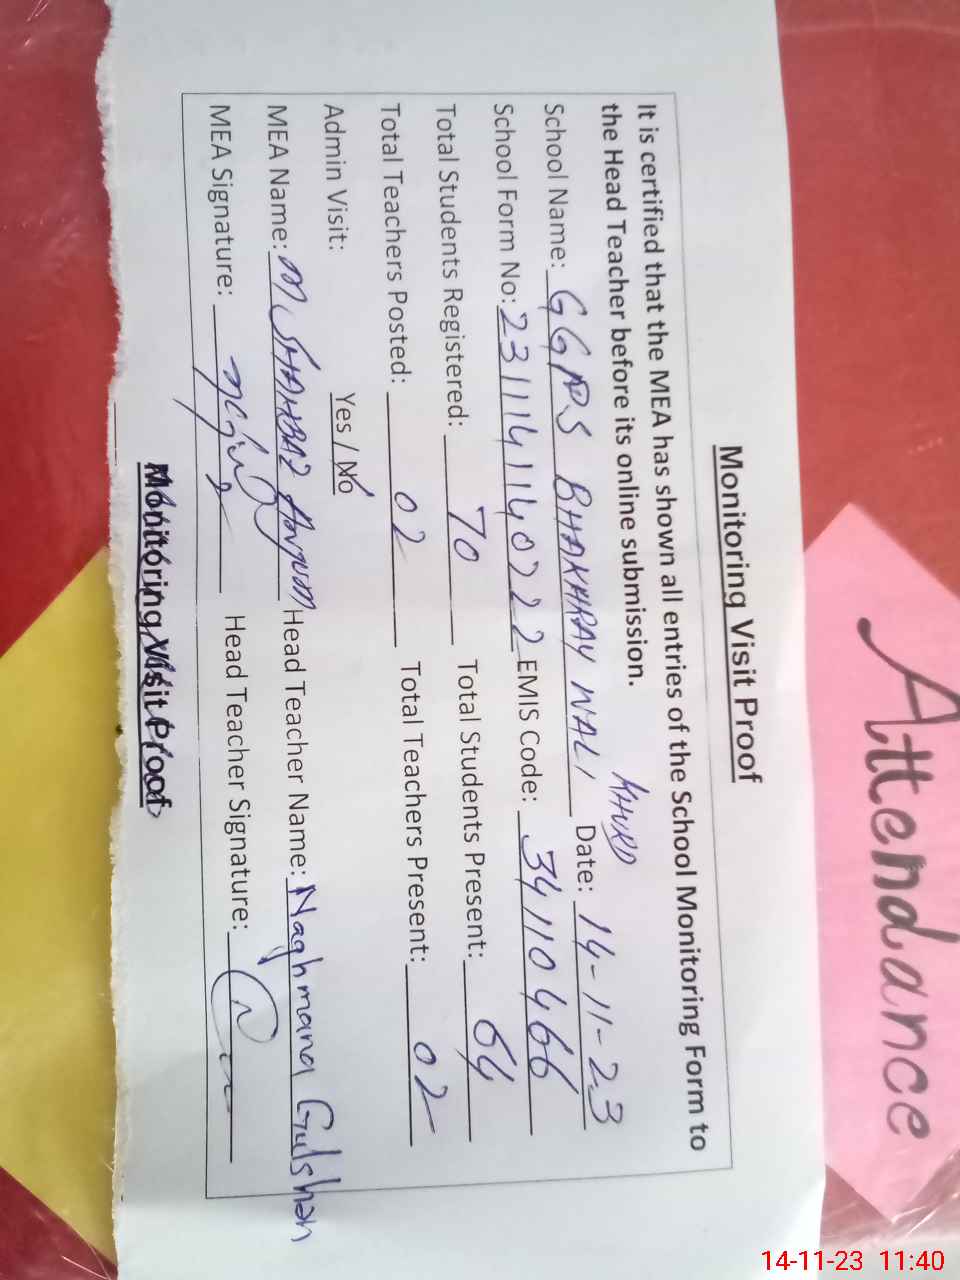 Attendance
Monitoring Visit Proof
It is certified that the MEA has shown all entries of the School Monitoring Form to
the Head Teacher before its online submission.
KHURD
School Name: GGPS BHAKHRAY WALI Date: 14-11-23
School Form No: 231114114022 EMIS Code: 34110466
Total Students Registered: 70 Total Students Present: 64
Total Teachers Posted: 02 Total Teachers Present: 02
Admin Visit: Yes / No
MEA Name: M SHAHBAZ Anjum Head Teacher Name: Naghmana Gulshan
MEA Signature: Head Teacher Signature:
Monitoring Visit Proof
14-11-23 11:40